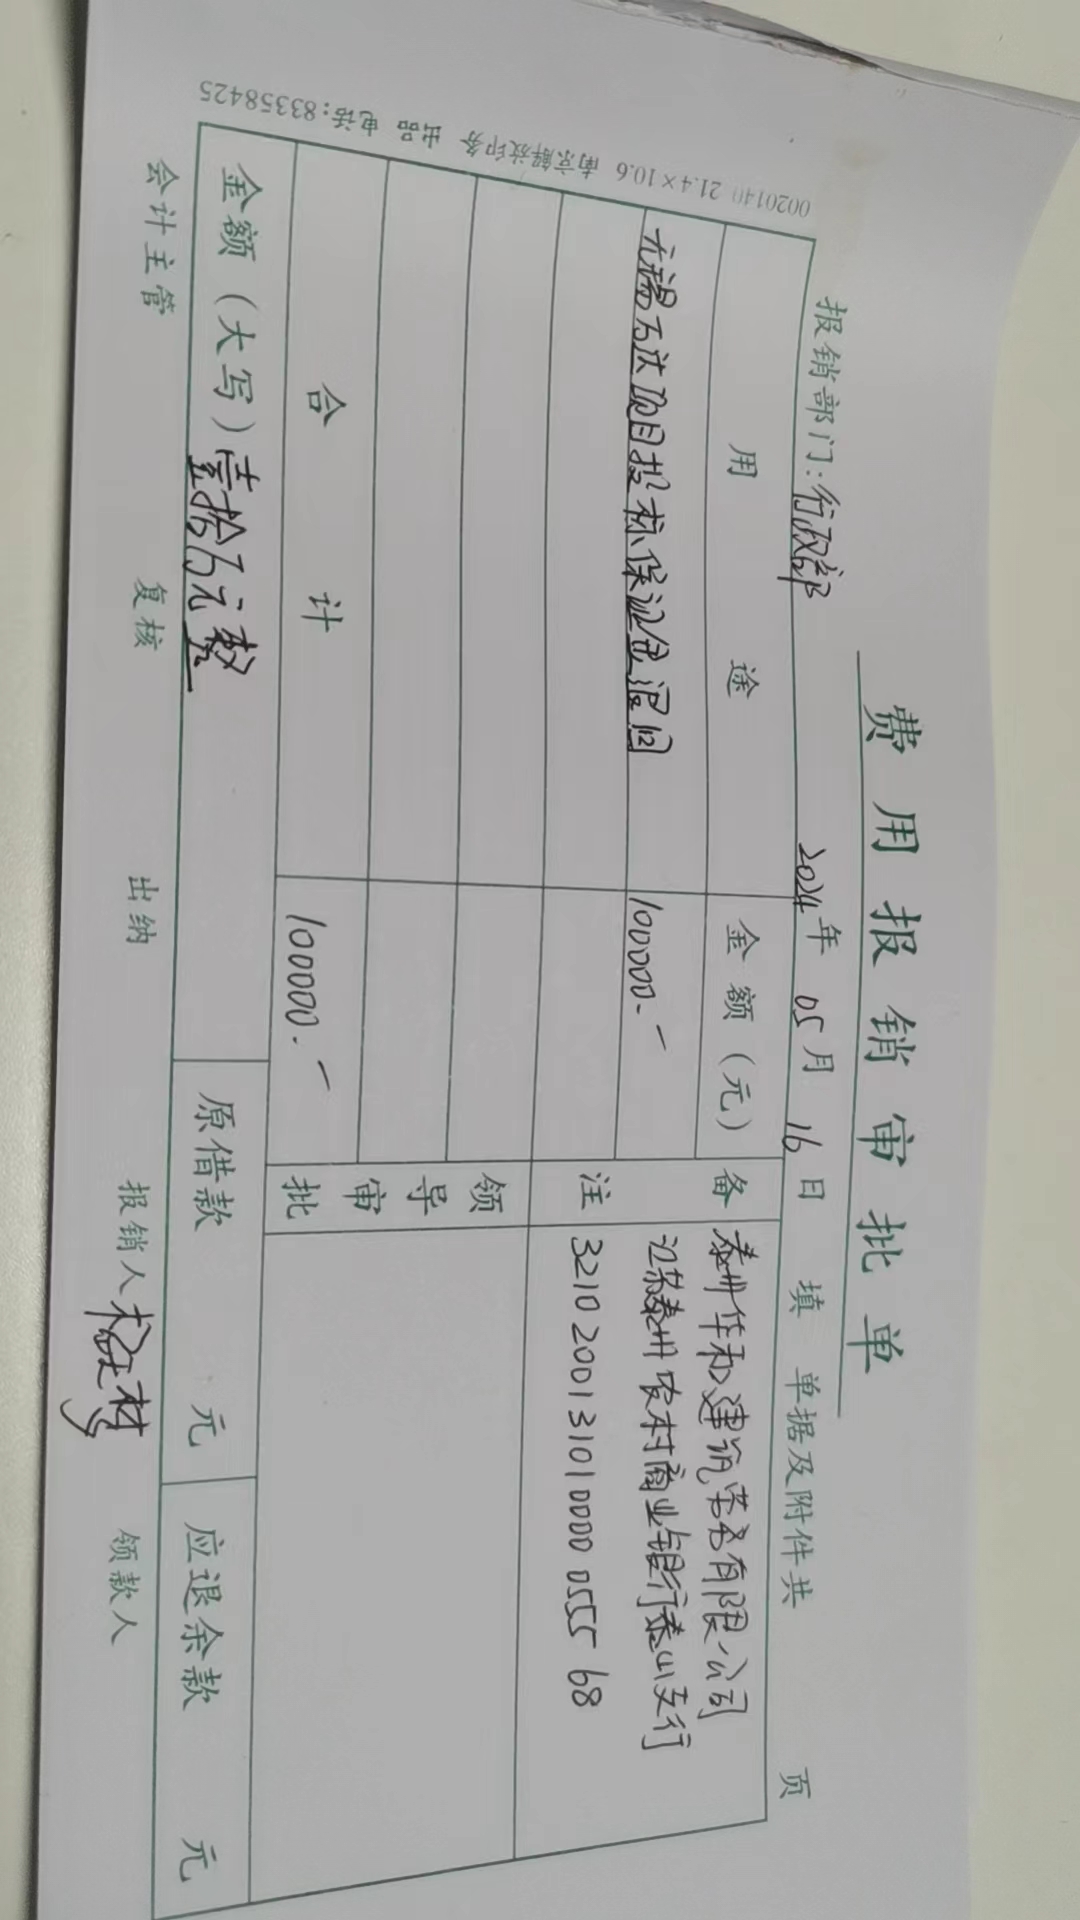 费用报销审批单
报销部门:行政部 2024年05月16日填 单据及附件共 页
用途 金额(元) 备注
无锡万达项目投标保证金退回 100000.-
泰州华和建筑劳务有限公司
江苏泰州农村商业银行泰山支行
3210200131010000055568
领导审批
合计 100000.-
金额(大写)壹拾万元整 原借款 元 应退余款 元
会计主管 复核 出纳 报销人 领款人
0020140 21.4×10.6 南京解放印务 出品 电话:83358425